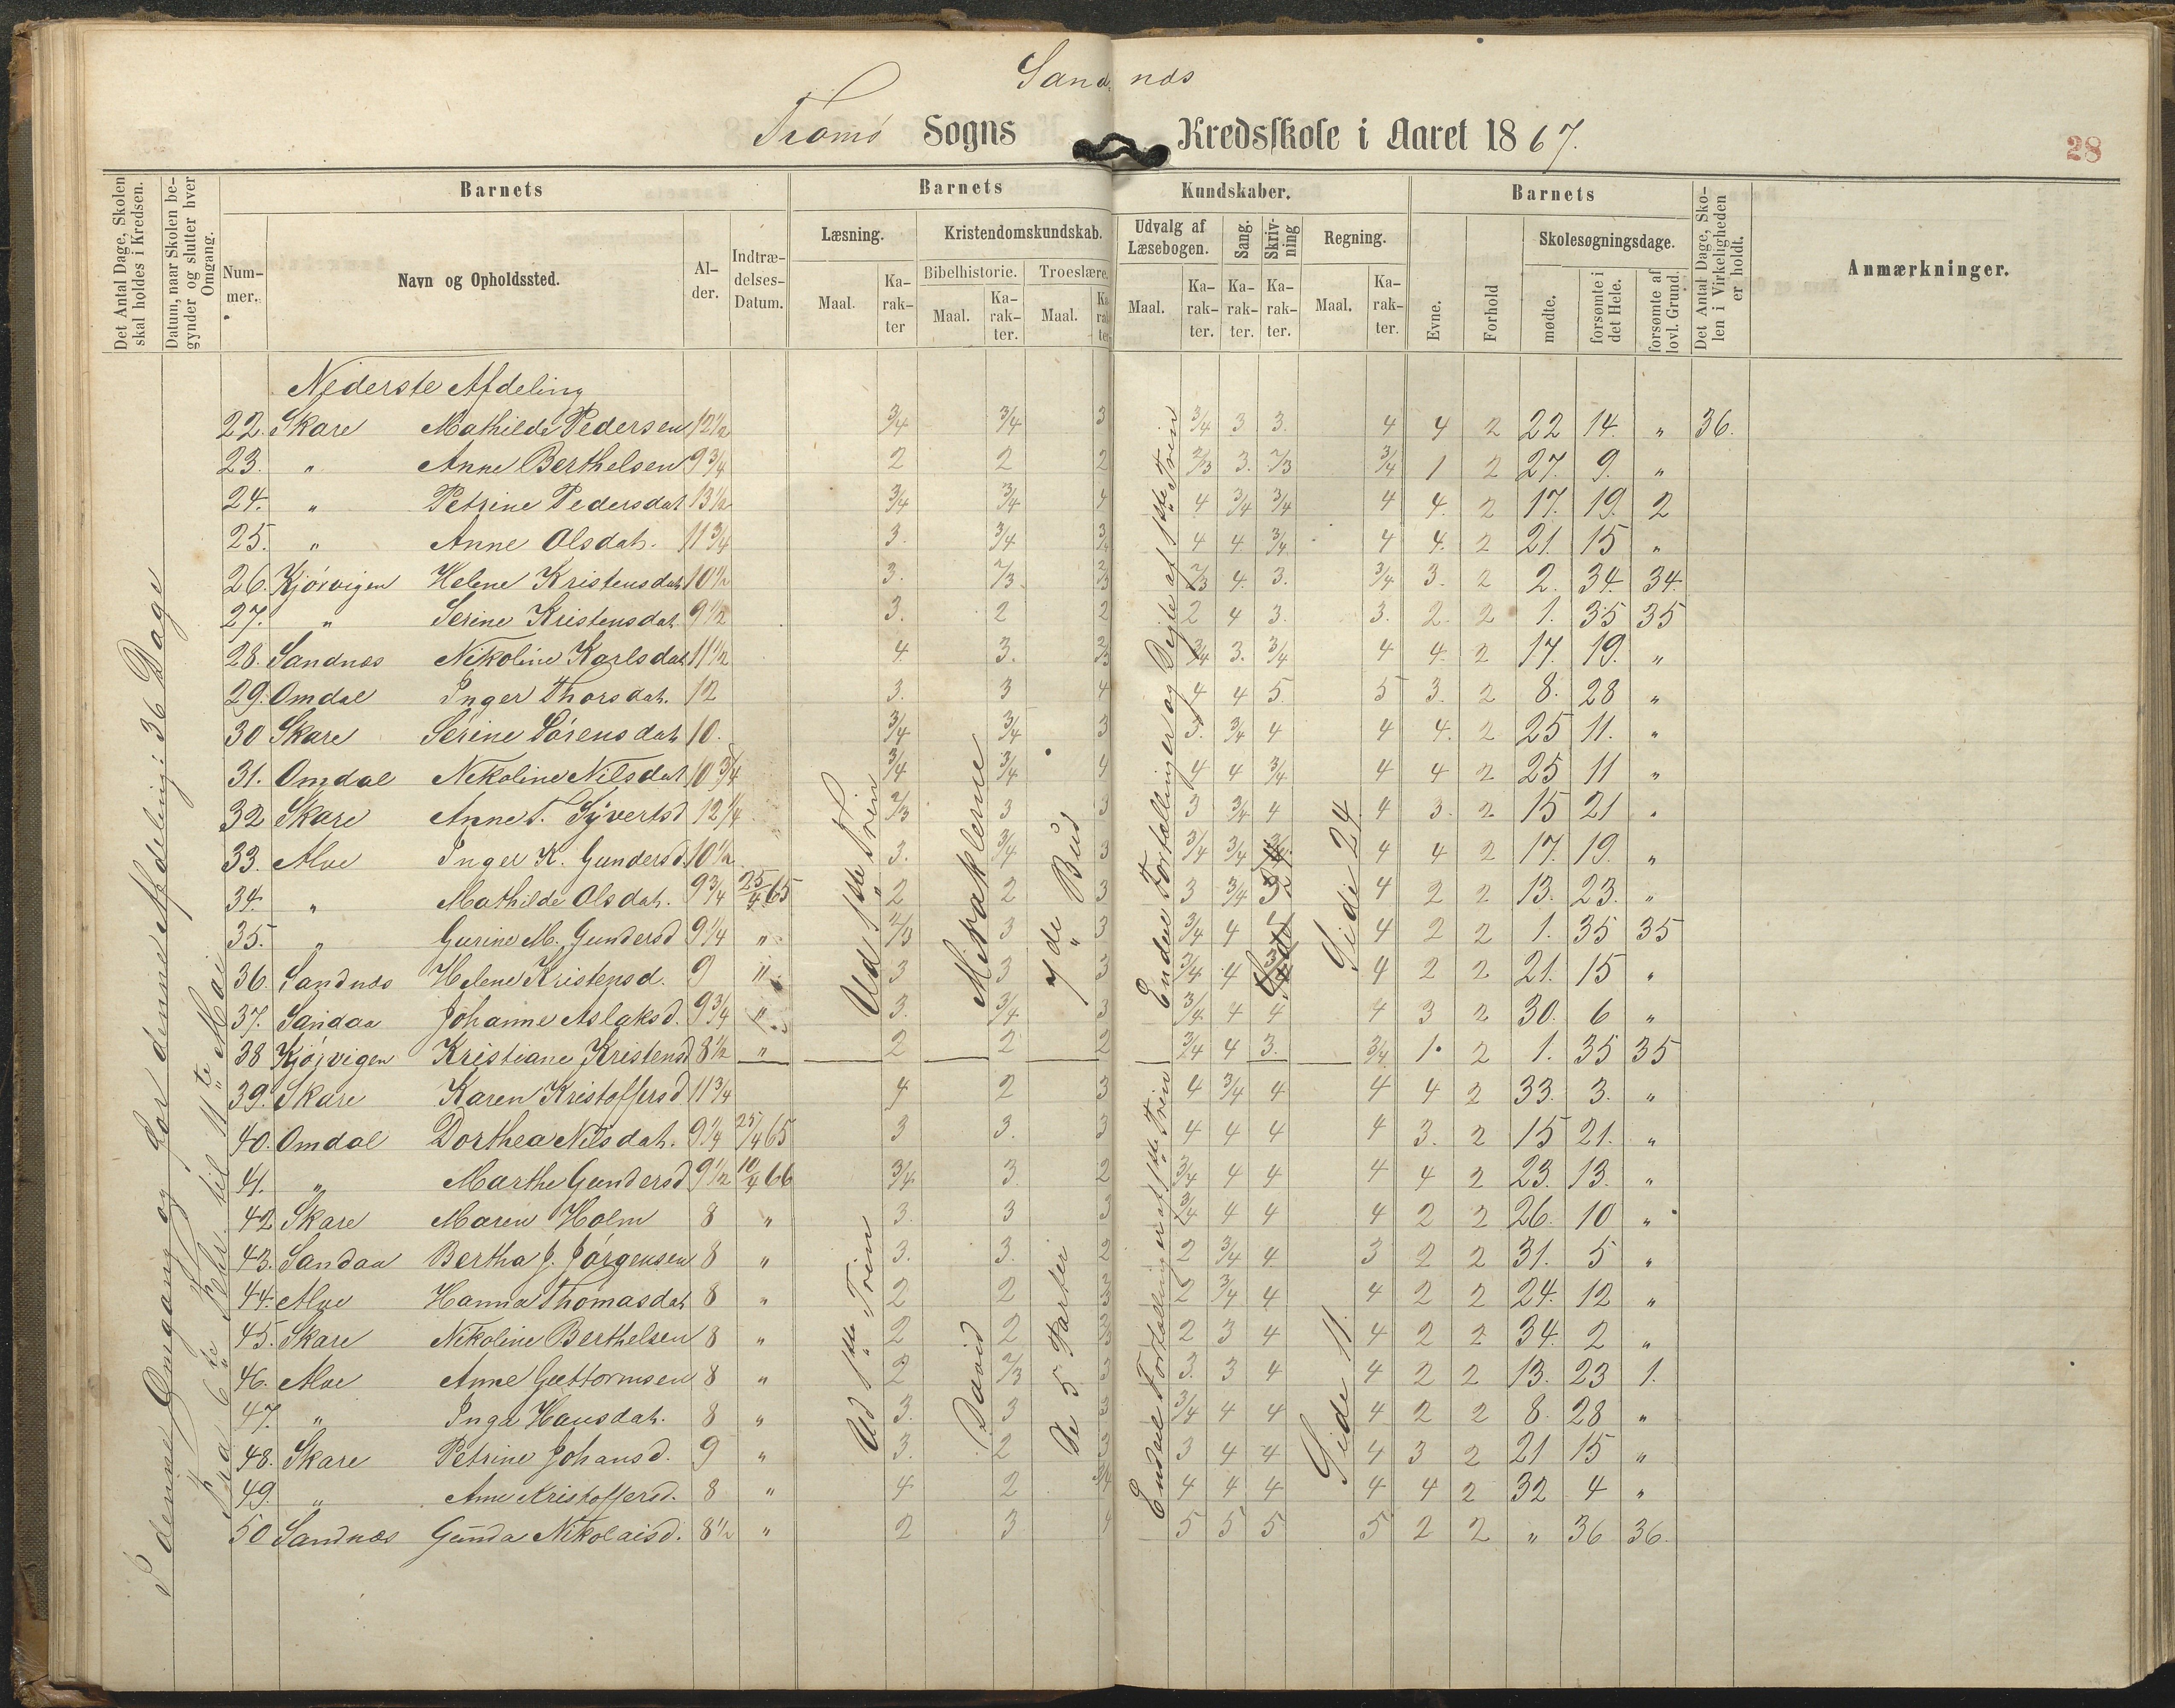 Sandnæs
Tromø Sogns Kredsskole i Aaret 1867.
28
Det Antal Dage, Skolen skal holdes i Kredsen.
Datum, naar Skolen begynder og slutter hver Omgang.
Barnets
Barnets
Kundskaber.
Barnets
Det Antal Dage, Skolen i Virkeligheden er holdt.
Anmærkninger.
Nummer. Navn og Opholdssted. Alder. Indtrædelses-Datum.
Læsning. Kristendomskundskab. Udvalg af Læsebogen. Sang. Skrivning Regning. Evne. Forhold Skolesøgningsdage.
Bibelhistorie. Troeslære.
Maal. Karakter Maal. Karakter. Maal. Karakter Maal. Karakter. Karakter. Karakter. Maal. Karakter. mødte. forsømte i det Hele. forsømte af lovl. Grund.
I denne Omgang og for denne Afdeling: 36 Dage
Fra 6te Febr. til 11te Mai
Nederste Afdeling
22. Skare Mathilde Pedersen 12½ 3/4 3/4 3 3/4 3 3. 4 4 2 22 14. " 36.
23. " Anne Berthelsen 9¾ 2 2 2 2/3 3. 2/3 3/4 1 2 27. 9. "
24. " Petrine Pedersdat 13½ 3/4 3/4 4 4 3/4 3/4 4 4. 2 17. 19. 2
25. " Anne Olsdat. 11¾ 3. 3/4 3/4 4 4. 3/4 4 4. 2 21. 15 "
26. Kjørvigen Helene Kristensdat 10½ 3. 2/3. 2/3 2/3 4. 3. 3/4 3. 2 2. 34. 34.
27. " Serine Kristensdat 9½ 3. 2 2 2 4 3. 3. 2. 2 1. 35 35
28. Sandnæs Nikoline Karlsdat 11½ 4. 3. 2/3 3/4 3. 3/4 4 4. 2 17. 19. "
29. Omdal Inger Thorsdat. 12 3. 3 4 4 4 5. 5 3. 2 8. 28 "
30 Skare Serine Sørensdat 10. 3/4 3/4 3 3. 3/4 4 4 4. 2 25 11. "
31. Omdal Nikoline Nilsdat 10¾ 3/4 3/4 4 4 4 3/4 4 4 2 25 11 "
32 Skare Anne T. Syvertsd 12¼ 2/3 3 3 3 3/4 4 4 3. 2 15 21 "
33. Alve Inger K. Gundersd. 10½ 3. 3/4 3 3/4 3/4 4 4 2 17. 19. "
34. " Mathilde Olsdat. 9¾ 25/4 65 2 2 3 3 3/4 3 4 2 2 13. 23. "
35. " Gurine M. Gundersd 9¼ " 2/3 3 3 3/4 4 4 2 2 1. 35 35
36. Sandnæs Helene Kristensd. 9 " 3 3 3 3/4 4 4 2 2 21. 15 "
37. Sandaa Johanne Aslaksd. 9¾ " 3. 3/4 3 3/4 4 4 4 3 2 30. 6 "
38 Kjørvigen Kristiane Kristensd 8½ " 2 2 2 3/4 4 3. 3/4 1. 2 1. 35 35
39. Skare Karen Kristoffersd 11¾ 4 2 3 4 3/4 4 4 4 2 33. 3. "
40. Omdal Dorthea Nilsdat. 9¼ 25/4 65 3 3. 3 4 4 4 4 3. 2 15 21. "
41. " Marthe Gundersd 9½ 10/4 66 3/4 3. 2 3/4 4 4 4 4 2 23. 13. "
42 Skare Maren Holm 8 " 3. 3 3 3/4 4 4 4 2 2 26. 10 "
43. Sandaa Bertha J. Jørgensen 8 " 3. 3. 2 2 3/4 4 3 2 2 31. 5 "
44. Alve Hanna Thomasdat 8 " 2 2 3 2 3/4 4 4 2 2 24. 12 "
45. Skare Nikoline Berthelsen 8 " 2 2 3 2 3 4 4 2 2 34. 2 "
46. Alve Anne Guttormsen 8 " 2 2/3 3 3. 3 4 4 2 2 13. 23 1.
47. " Inga Hansdat. 8 " 3. 3 3 3/4 4 4 4 2 2 8. 28 "
48. Skare Petrine Johansd. 9 " 3. 2 3 3 4 4 4 3 2 21 15 "
49. " Anne Kristoffersd. 8 " 4 2 3/4 4 4 4 4 4 2 32 4 "
50 Sandnæs Gunda Nikolaisd. 8½ " 2 3 4 5 5 5 5 2 2 " 36 36.
Ud 1ste Trin
Miraklerne
7de Bud
Endeel Fortællinger og Digte af 1ste Trin
Side 24
Ud 1ste Trin
David
De 5 Parter
Endeel Fortællinger af 1ste Trin
Side 11.